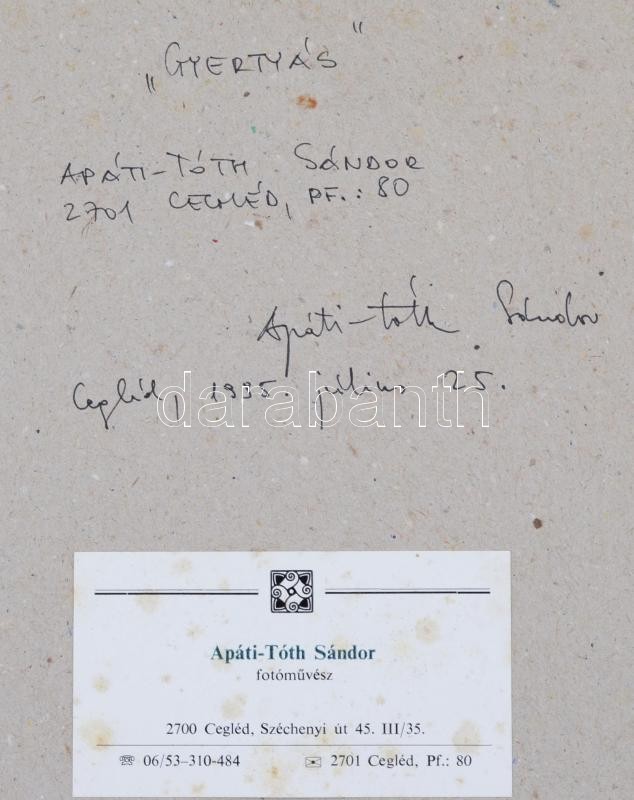 „GYERTYÁS"
APÁTI-TÓTH SÁNDOR
2701 CEGLÉD, PF.: 80
Apáti-Tóth Sándor
Cegléd, 1995. július 25.
darabanth
Apáti-Tóth Sándor
fotóművész
2700 Cegléd, Széchenyi út 45. III/35.
☏ 06/53–310-484 ✉ 2701 Cegléd, Pf.: 80